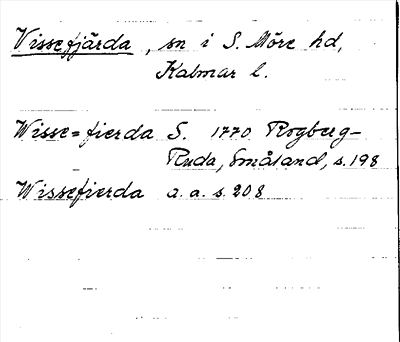 Vissefjärda, sn i S. Möre hd,
Kalmar l.
Wisse=fierda S. 1770 Rogberg-
Ruda, Småland, s. 198
Wissefierda a. a. s. 208